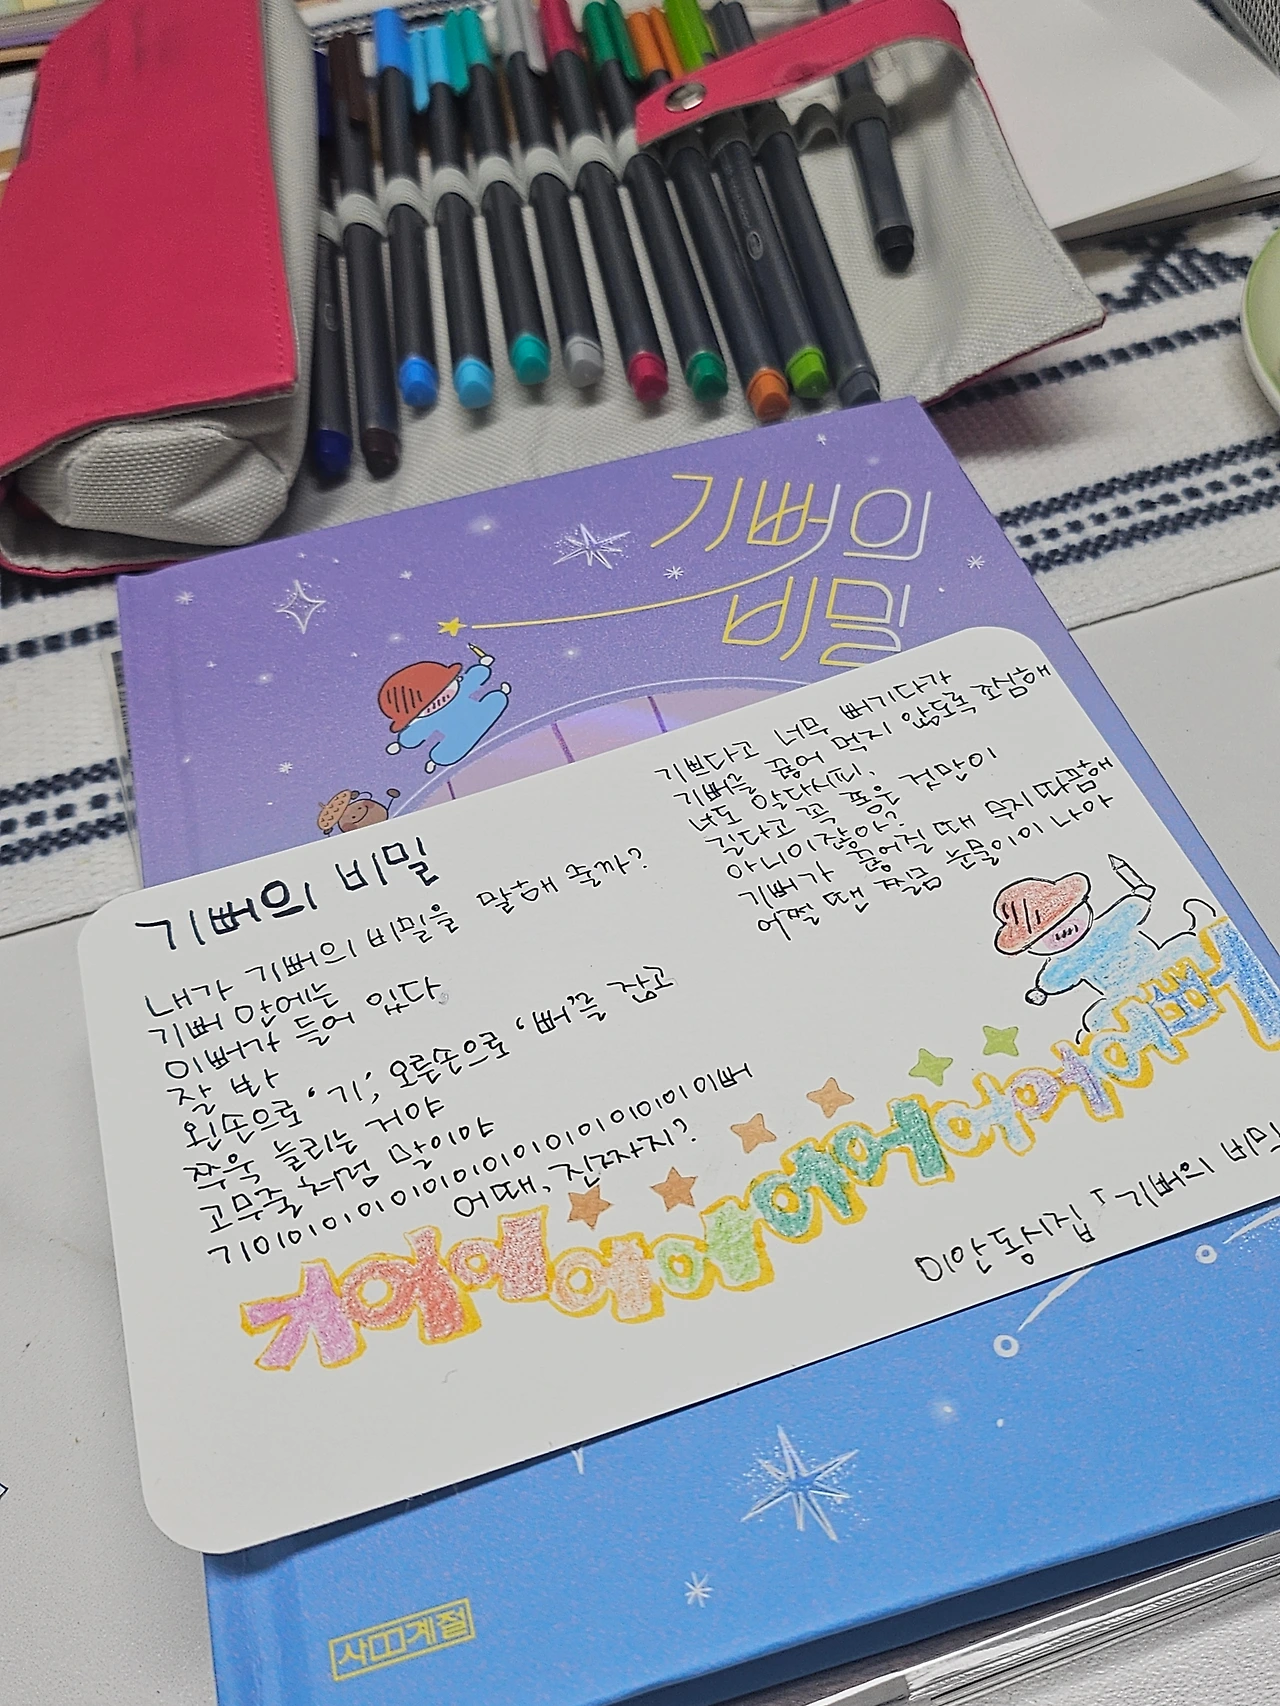 기뻐의
비밀
기뻐의 비밀
내가 기뻐의 비밀을 말해 줄까?
기뻐 안에는
이뻐가 들어 있다
잘 봐
왼손으로 '기', 오른손으로 '뻐'를 잡고
쭈욱 늘리는 거야
고무줄처럼 말이야
기이이이이이이이이이이이이이이뻐
어때, 진짜지?
기쁘다고 너무 뻐기다가
기뻐를 끊어 먹지 않도록 조심해
너도 알다시피,
길다고 꼭 좋은 것만이
아니이잖아?
기뻐가 끊어질 때 무지 따끔해
어쩔 땐 찔끔 눈물이이 나아
미안 동시집 「기뻐의 비밀
사계절